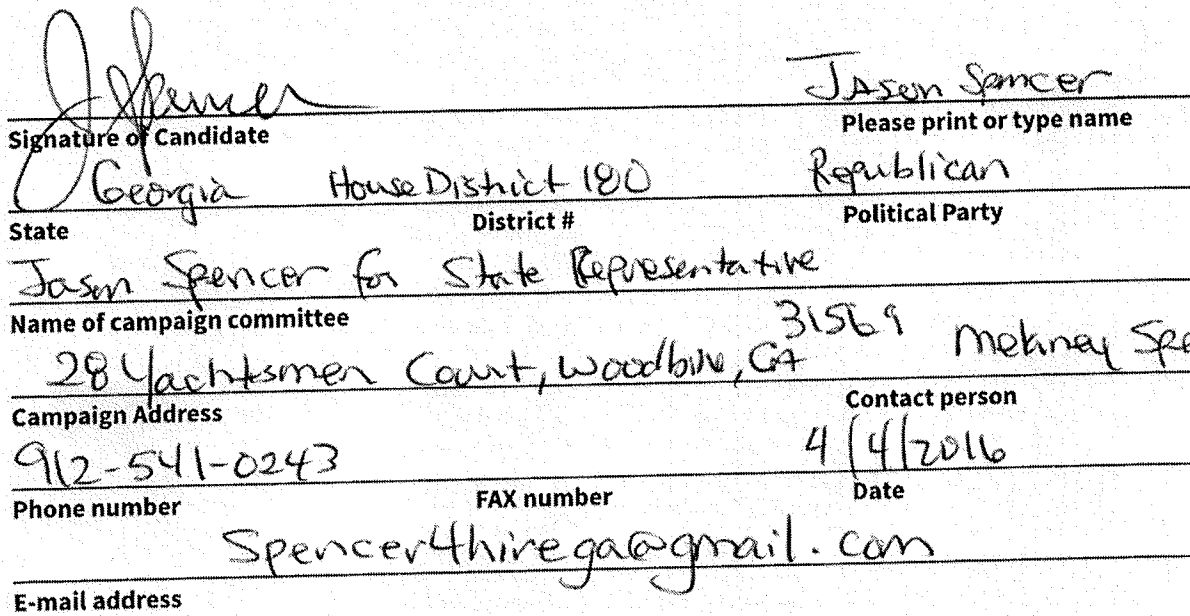 J Spencer JAson Spencer
Signature of Candidate Please print or type name
Georgia House District 180 Republican
State District # Political Party
Jason Spencer for State Representative
Name of campaign committee
31569
28 Yachtsmen Court, Woodbine, GA Spe
Campaign Address Contact person
912-541-0243 4/4/2016
Phone number FAX number Date
Spencer4hirega@gmail.com
E-mail address